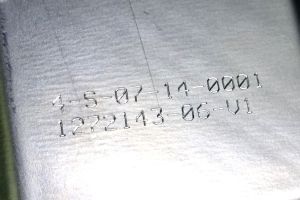 4-S-07-14-0001
1272143-06-V1